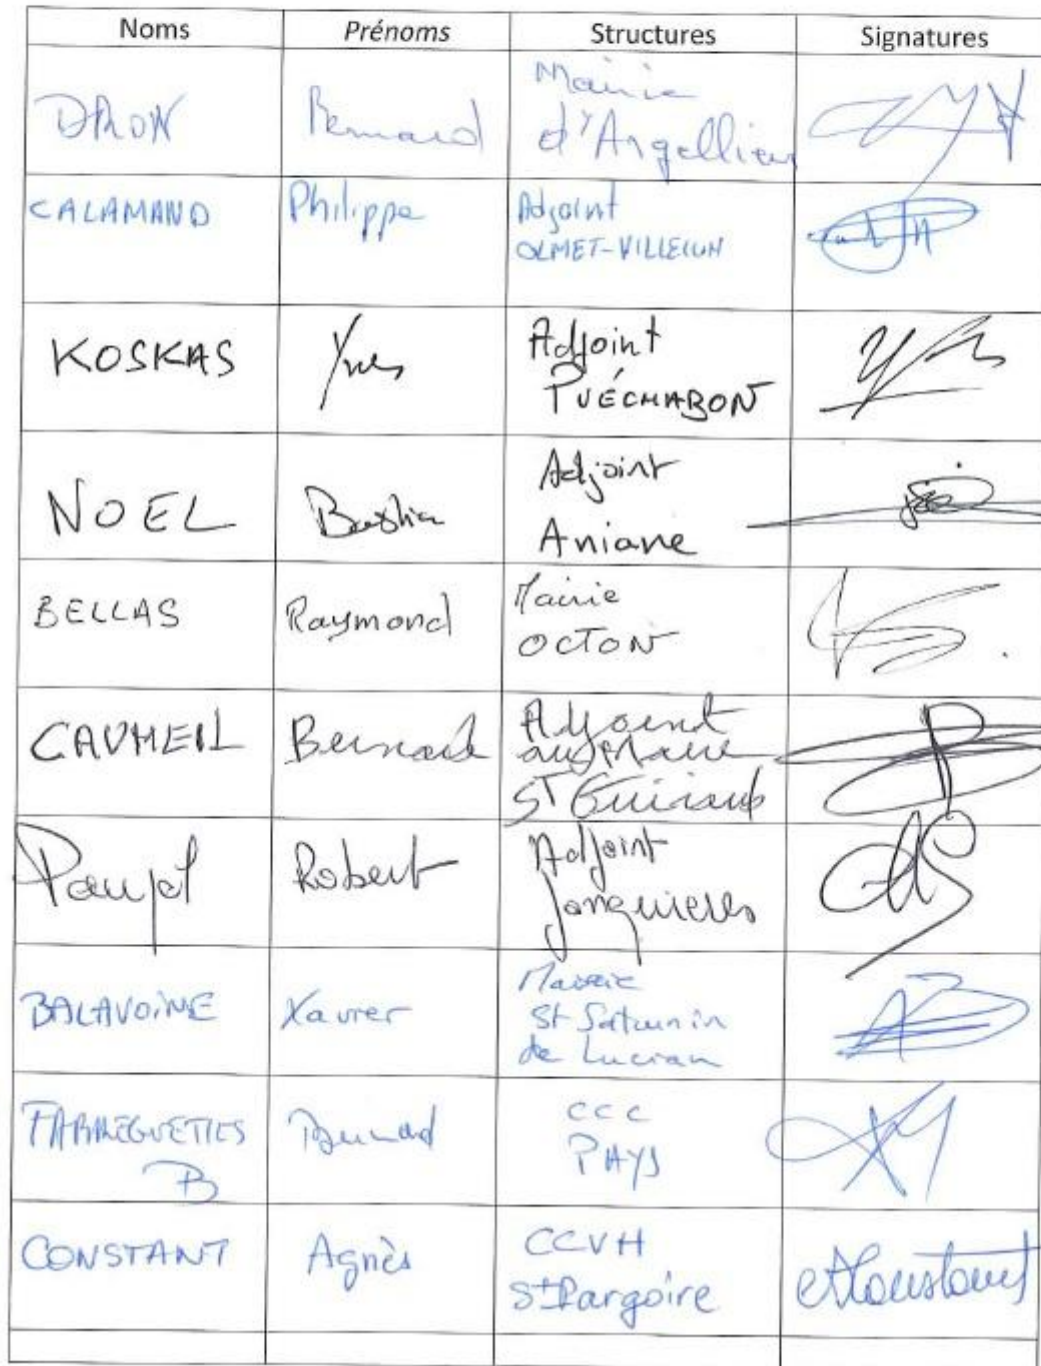 Noms Prénoms Structures Signatures
DRON Bernard Mairie
d'Argelliers
CALAMAND Philippe Adjoint
OLMET-VILLECUN
KOSKAS Yves Adjoint
PUÉCHABON
NOEL Bastien Adjoint
Aniane
BELLAS Raymond Mairie
OCTON
CAUMEIL Bernard Adjoint
au Maire
ST Guiraud
Poujol Robert Adjoint
Jonquieres
BALAVOINE Xavier Mairie
St Saturnin
de Lucian
FABREGUETTES Bernard CCC
B PAYS
CONSTANT Agnès CCVH
St Pargoire AConstant